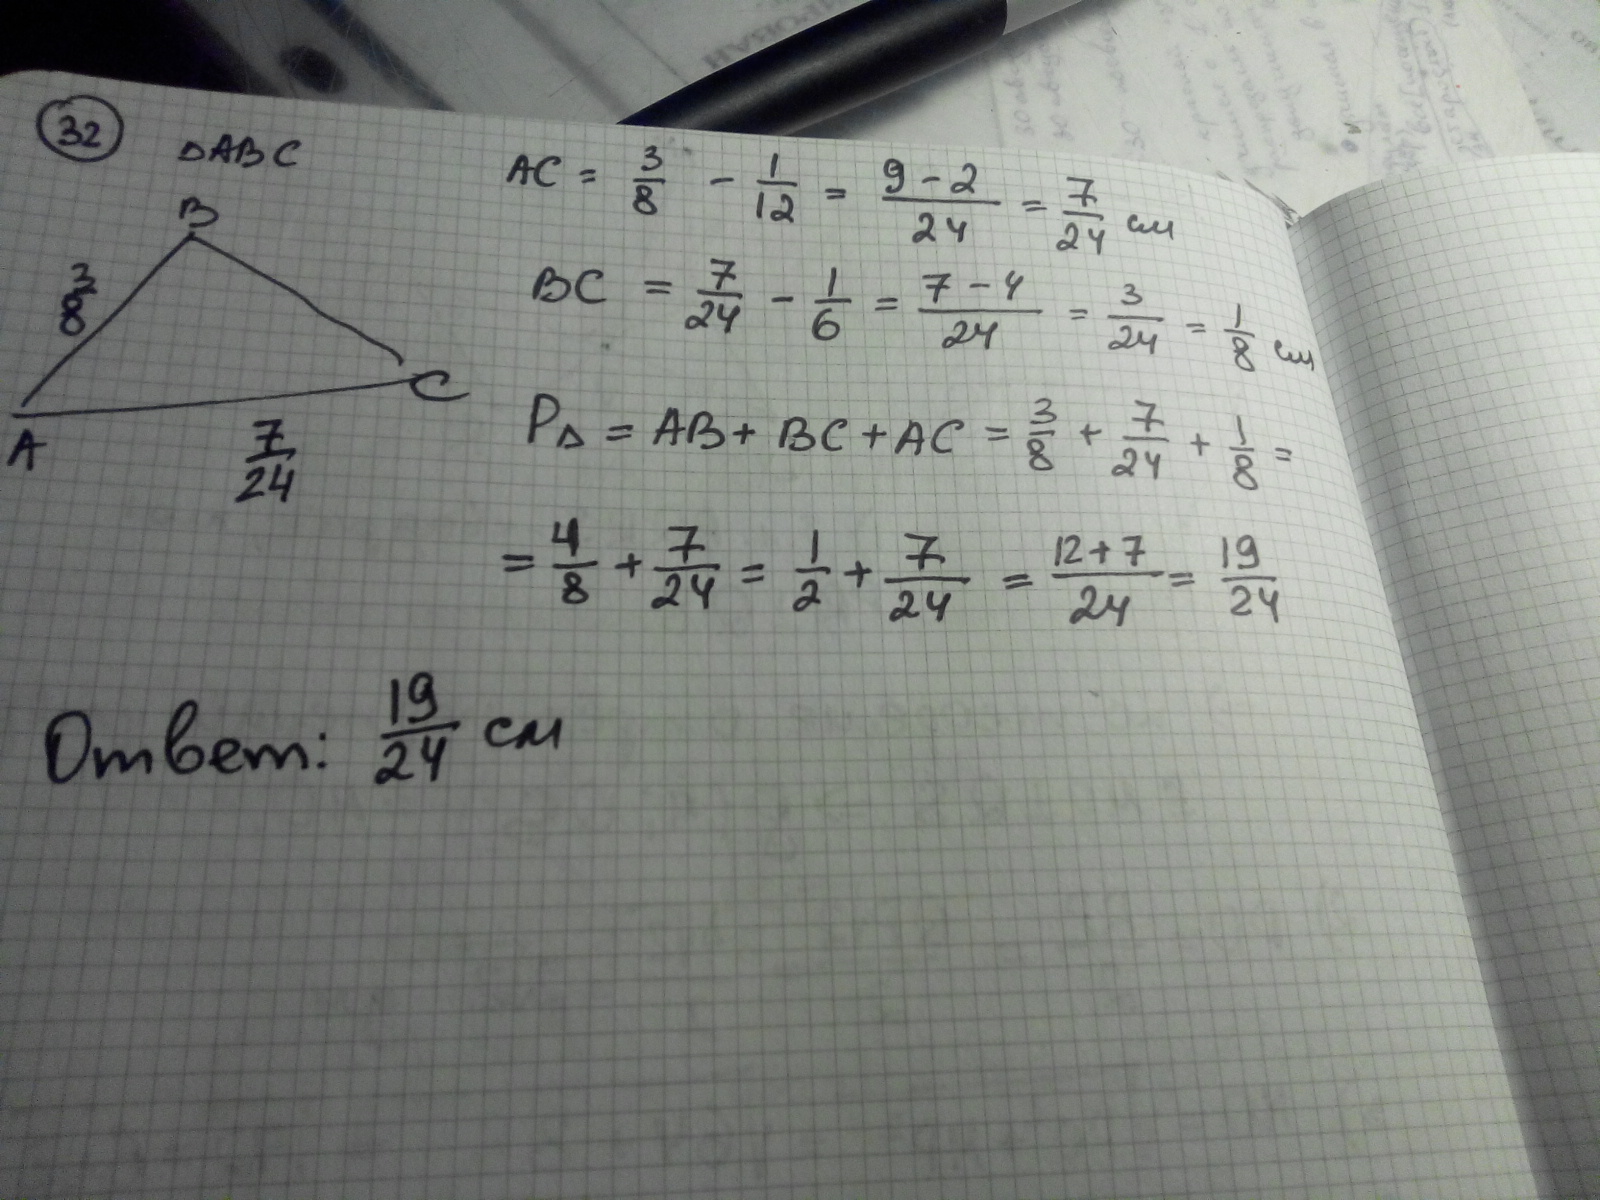 32
ΔABC
B
3/8
A
C
7/24
AC = 3/8 - 1/12 = (9-2)/24 = 7/24 см
BC = 7/24 - 1/6 = (7-4)/24 = 3/24 = 1/8 см
PΔ = AB + BC + AC = 3/8 + 7/24 + 1/8 =
= 4/8 + 7/24 = 1/2 + 7/24 = (12+7)/24 = 19/24
Ответ: 19/24 см